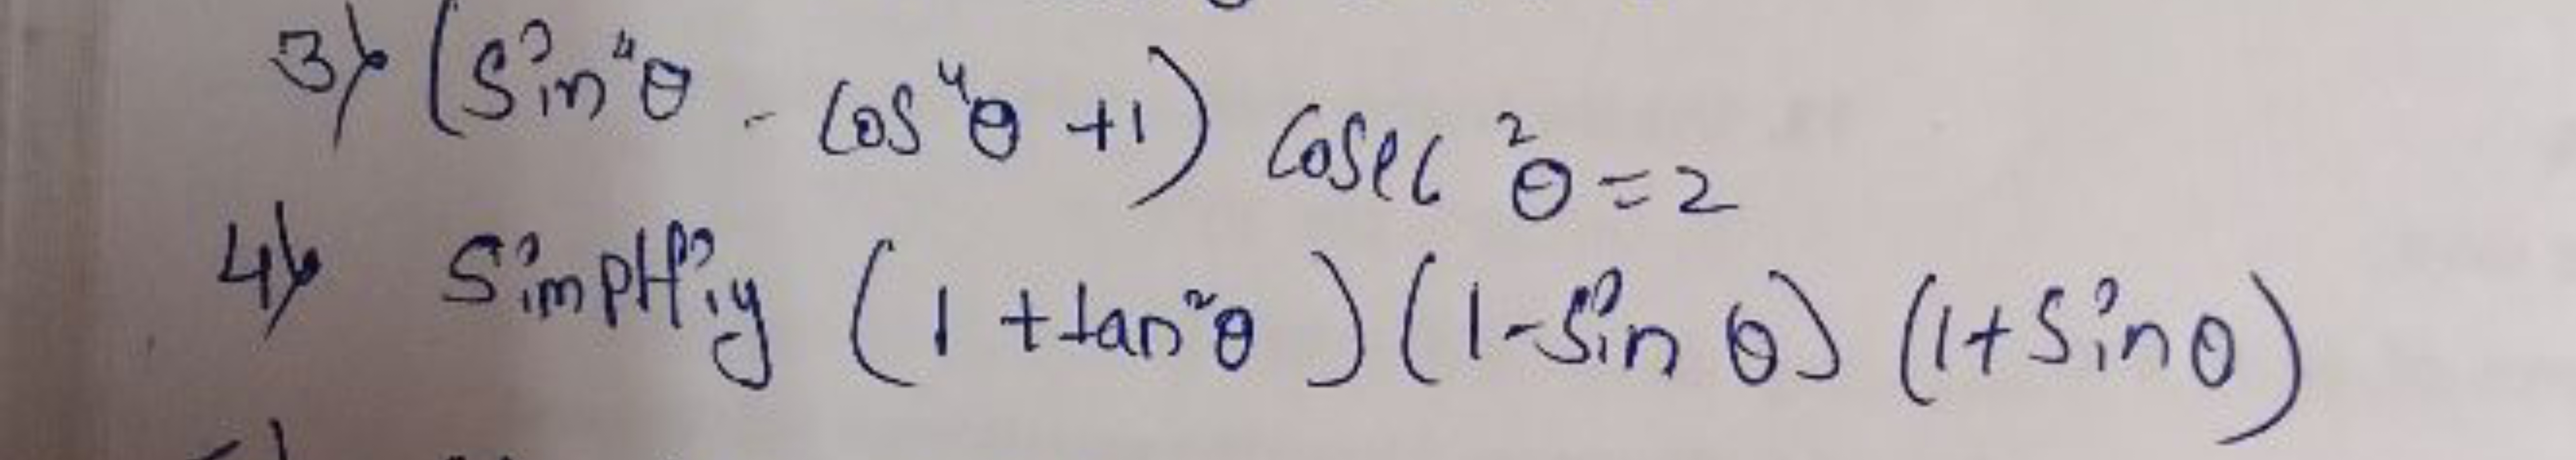 3) (Sin⁴θ - Cos⁴θ +1) Cosec²θ = 2
4) Simplify (1 + tan²θ) (1 - Sin θ) (1 + Sin θ)